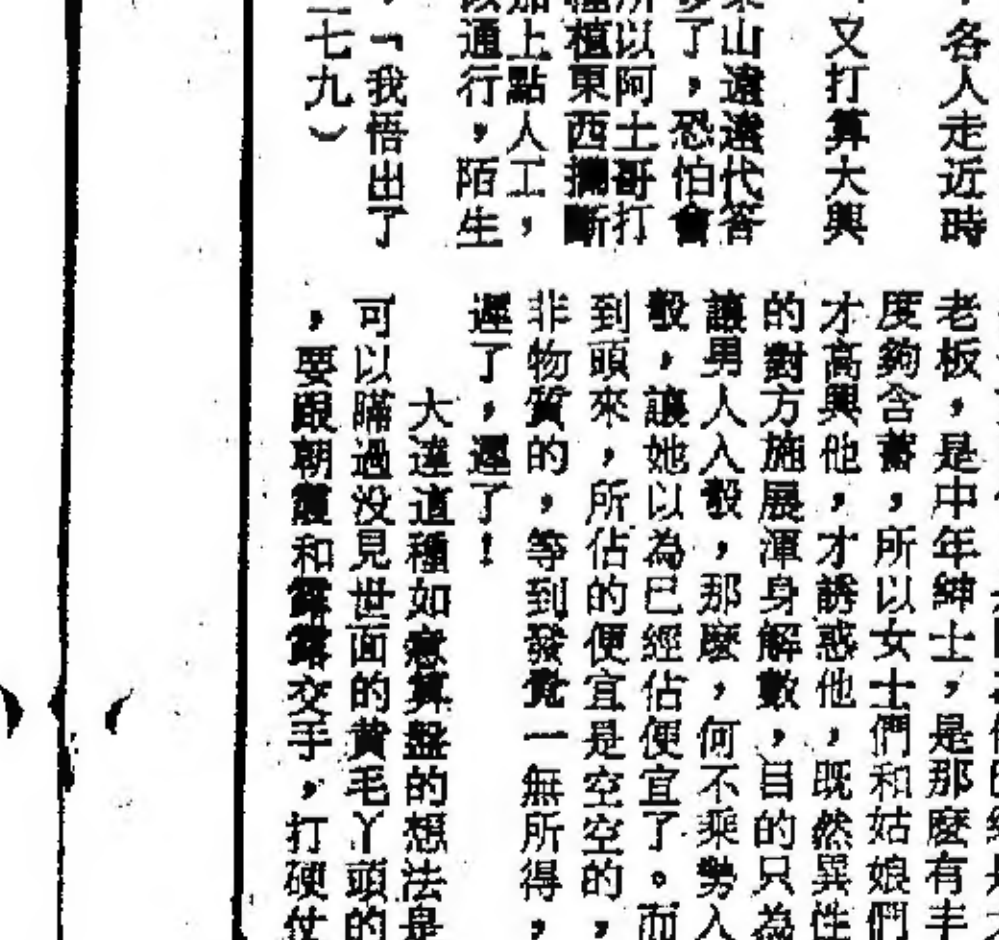 ，各人走近時
，又打算大興
山遠遠代答
了，恐怕會
所以阿土哥打
種植東西攔斷
加上點人工，
以通行，陌生
，「我悟出了
七九）
老板，是中年紳士，是那麼有丰
度夠含蓄，所以女士們和姑娘們
才高興他，才誘惑他，既然異性
的對方施展渾身解數，目的只為
讓男人入彀，那麼，何不乘勢入
彀，讓她以為已經佔便宜了。而
到頭來，所佔的便宜是空空的，
非物質的，等到發覺一無所得，
遲了，遲了！
大達這種如意算盤的想法是
可以瞞過没見世面的黄毛丫頭的
，要跟朝霞和露露交手，打硬仗